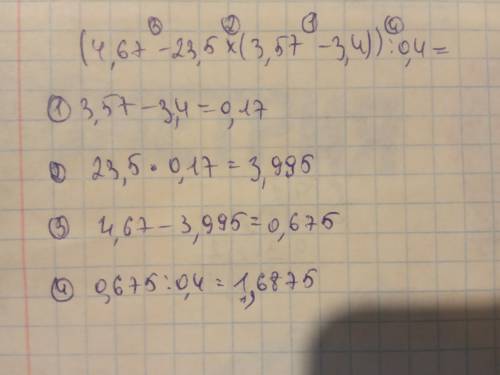 ③ ② ① ④
(4,67 - 23,5 × (3,57 - 3,4)) : 0,4 =
① 3,57 - 3,4 = 0,17
② 23,5 · 0,17 = 3,995
③ 4,67 - 3,995 = 0,675
④ 0,675 : 0,4 = 1,6875